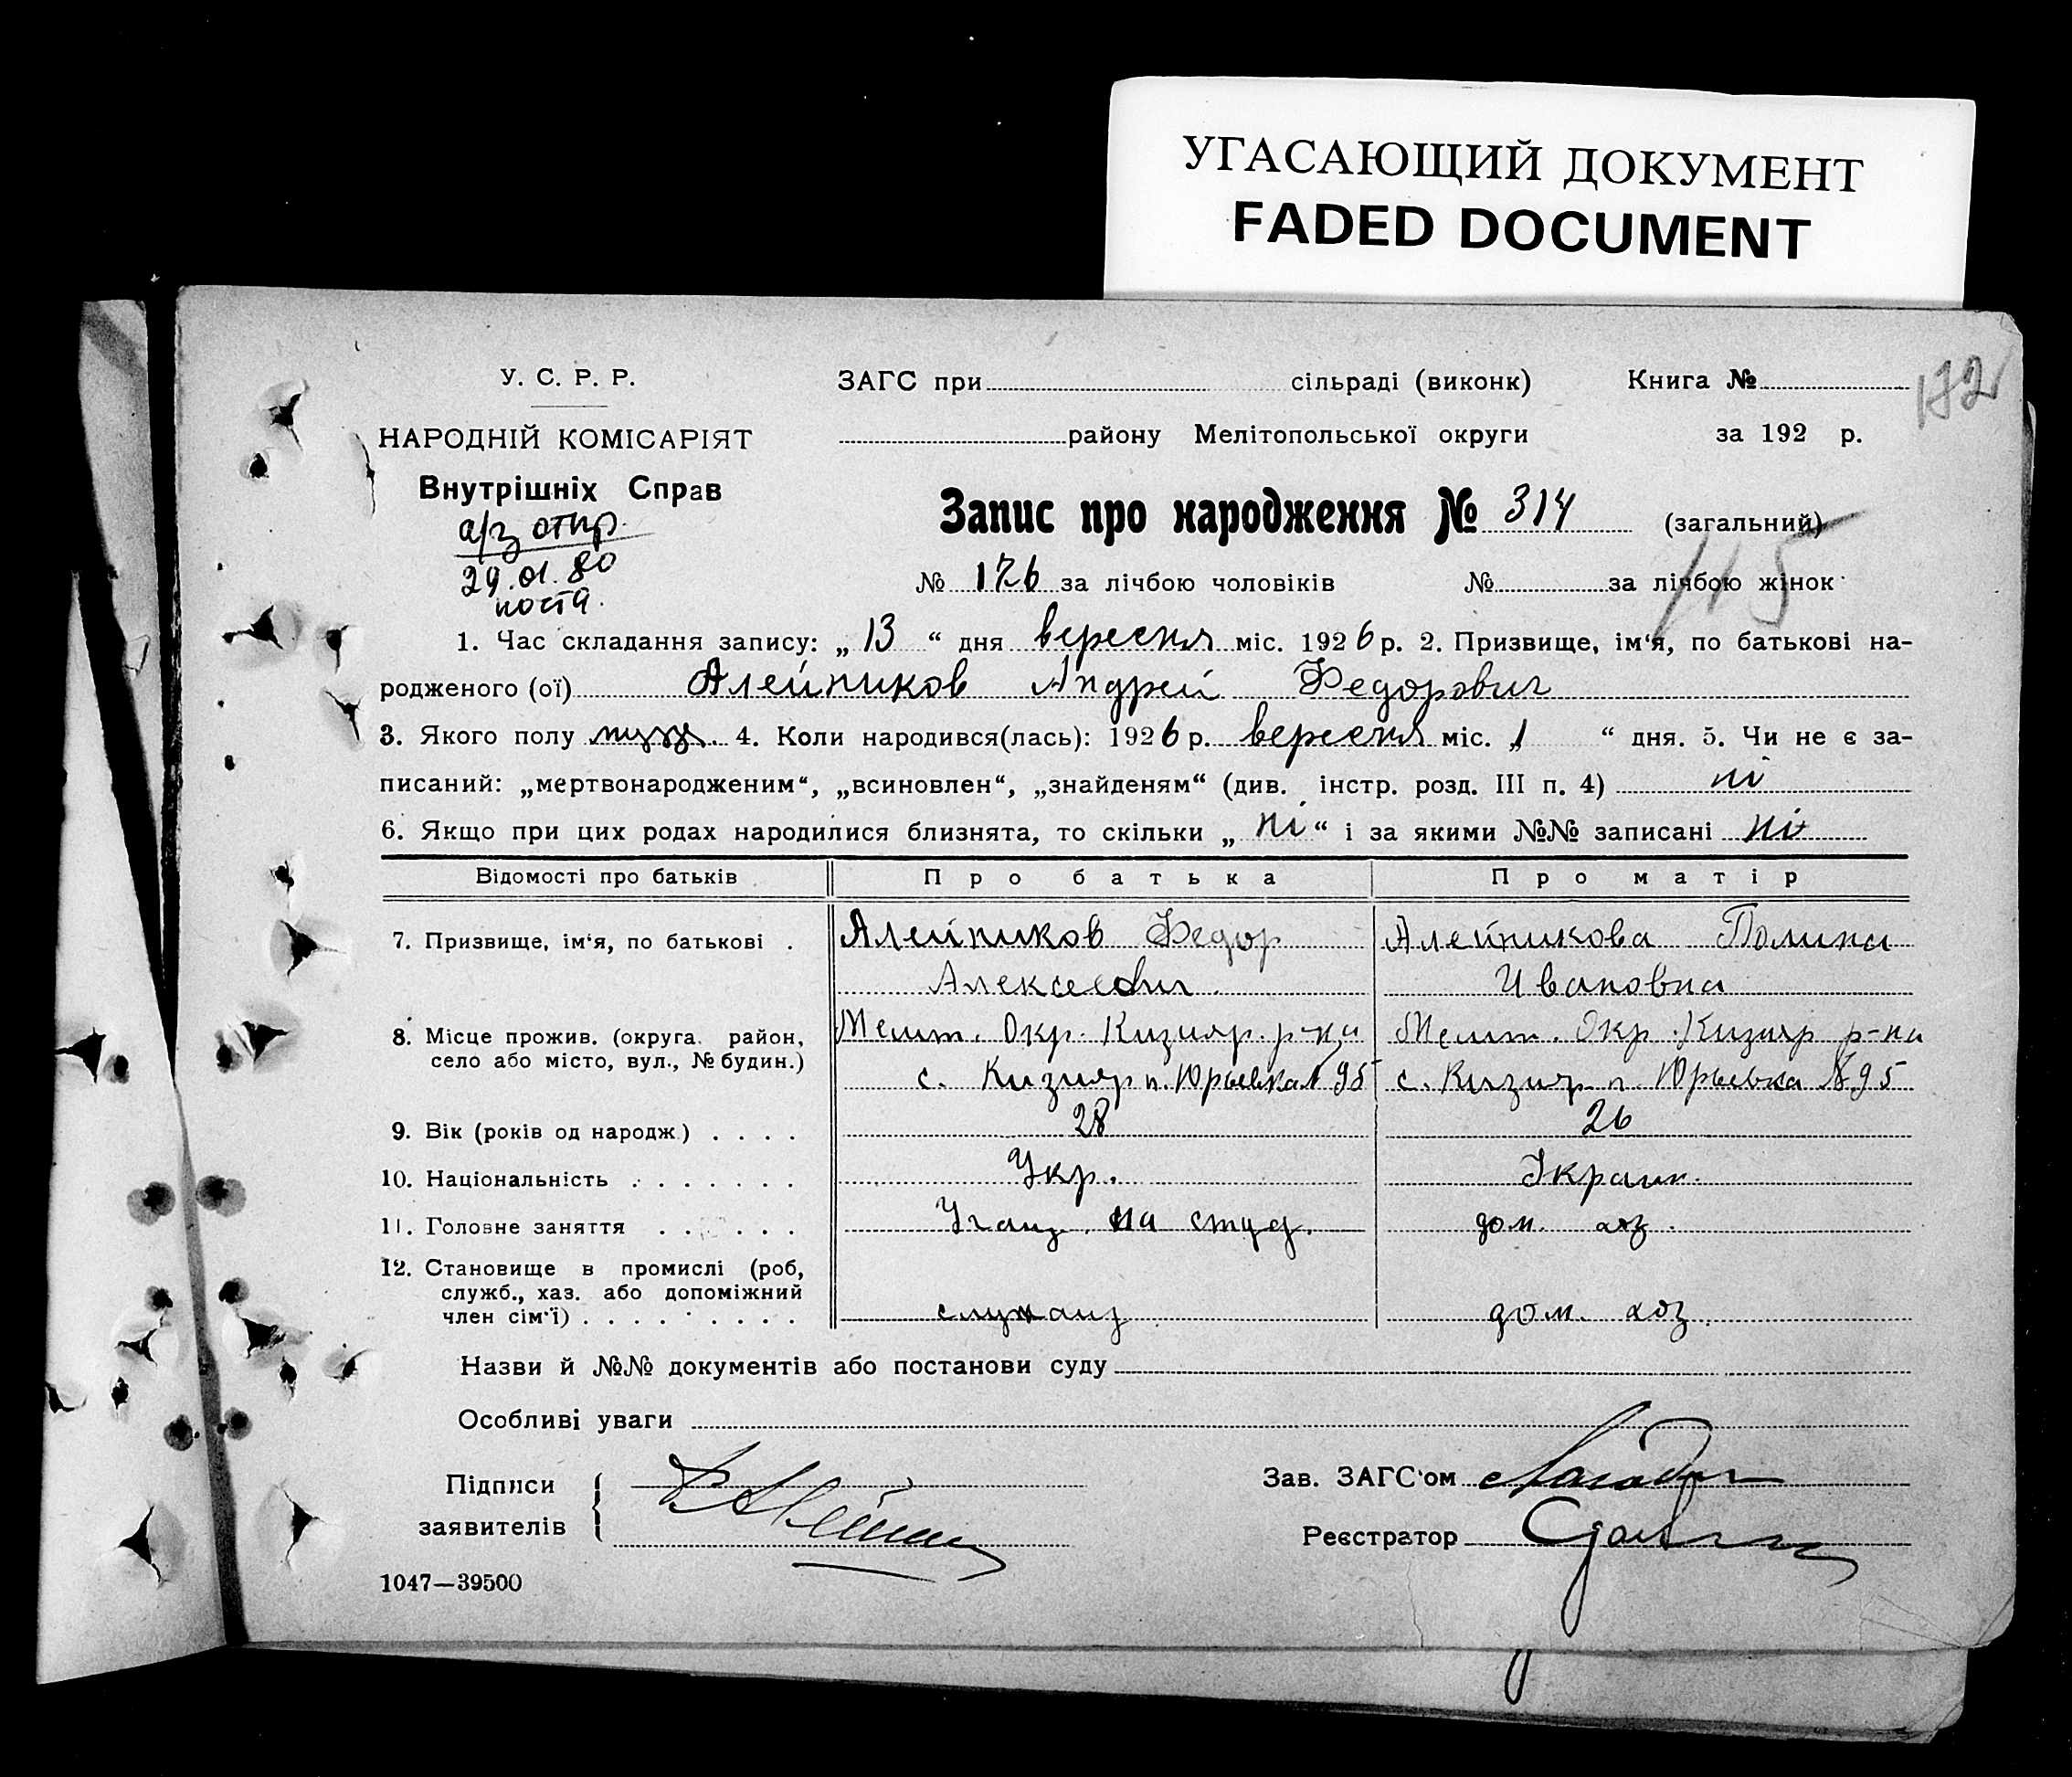 УГАСАЮЩИЙ ДОКУМЕНТ
FADED DOCUMENT
У. С. Р. Р.
НАРОДНІЙ КОМІСАРІЯТ
Внутрішніх Справ
а/з отпр.
29.01.80
ЗАГС при сільраді (виконк) Книга №
172
району Мелітопольської округи за 192 р.
Запис про народження № 314 (загальний)
115
№ 176 за лічбою чоловіків № за лічбою жінок
1. Час складання запису: „ 13 “ дня вересня міс. 1926 р. 2. Призвище, ім‘я, по батькові на-
родженого (ої) Алейников Андрей Федорович
3. Якого полу муж. 4. Коли народився(лась): 1926 р. вересня міс. „1 “ дня. 5. Чи не є за-
писаний: „мертвонародженим“, „всиновлен“, „знайденям“ (див. інстр. розд. III п. 4) ні
6. Якщо при цих родах народилися близнята, то скільки „ ні “ і за якими №№ записані ні
Відомості про батьків Про батька Про матір
7. Призвище, ім‘я, по батькові . Алейников Федор Алейникова Полина
Алексеевич Ивановна
8. Місце прожив. (округа. район, Мелит. Окр. Кизияр. р-на Мелит. Окр. Кизияр р-на
село або місто, вул., № будин.) с. Кизияр п. Юрьевка № 95 с. Кизияр п. Юрьевка № 95
9. Вік (років од народж.) . . . . 28 26
10. Національність . . . . . . . Укр. Украин.
11. Головне заняття . . . . . . на дом. хоз.
12. Становище в промислі (роб,
служб., хаз. або допоміжний
член сім‘ї) . . . . . . . . служащ дом. хоз.
Назви й №№ документів або постанови суду
Особливі уваги
Підписи
заявителів
Зав. ЗАГС‘ом
Реєстратор
1047—39500